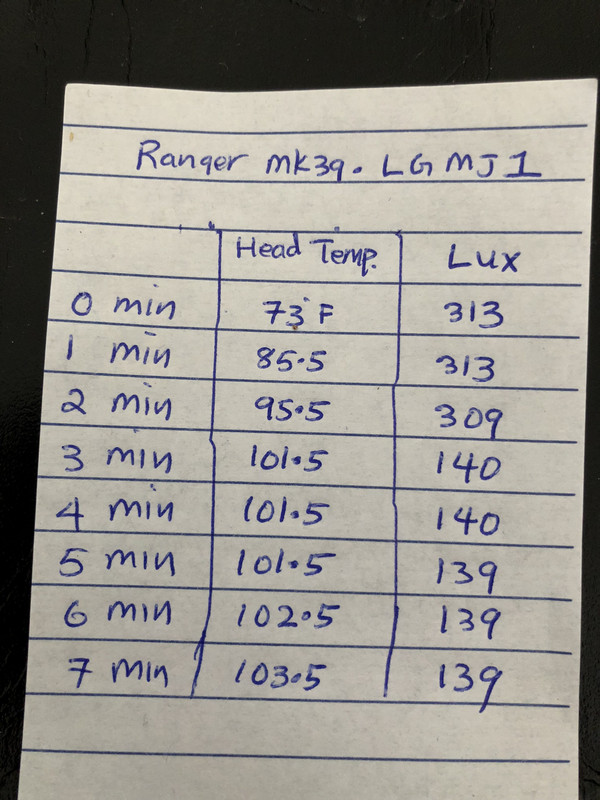 Ranger MK39. LG MJ1
Head Temp. Lux
0 min 73°F 313
1 min 85.5 313
2 min 95.5 309
3 min 101.5 140
4 min 101.5 140
5 min 101.5 139
6 min 102.5 139
7 min 103.5 139